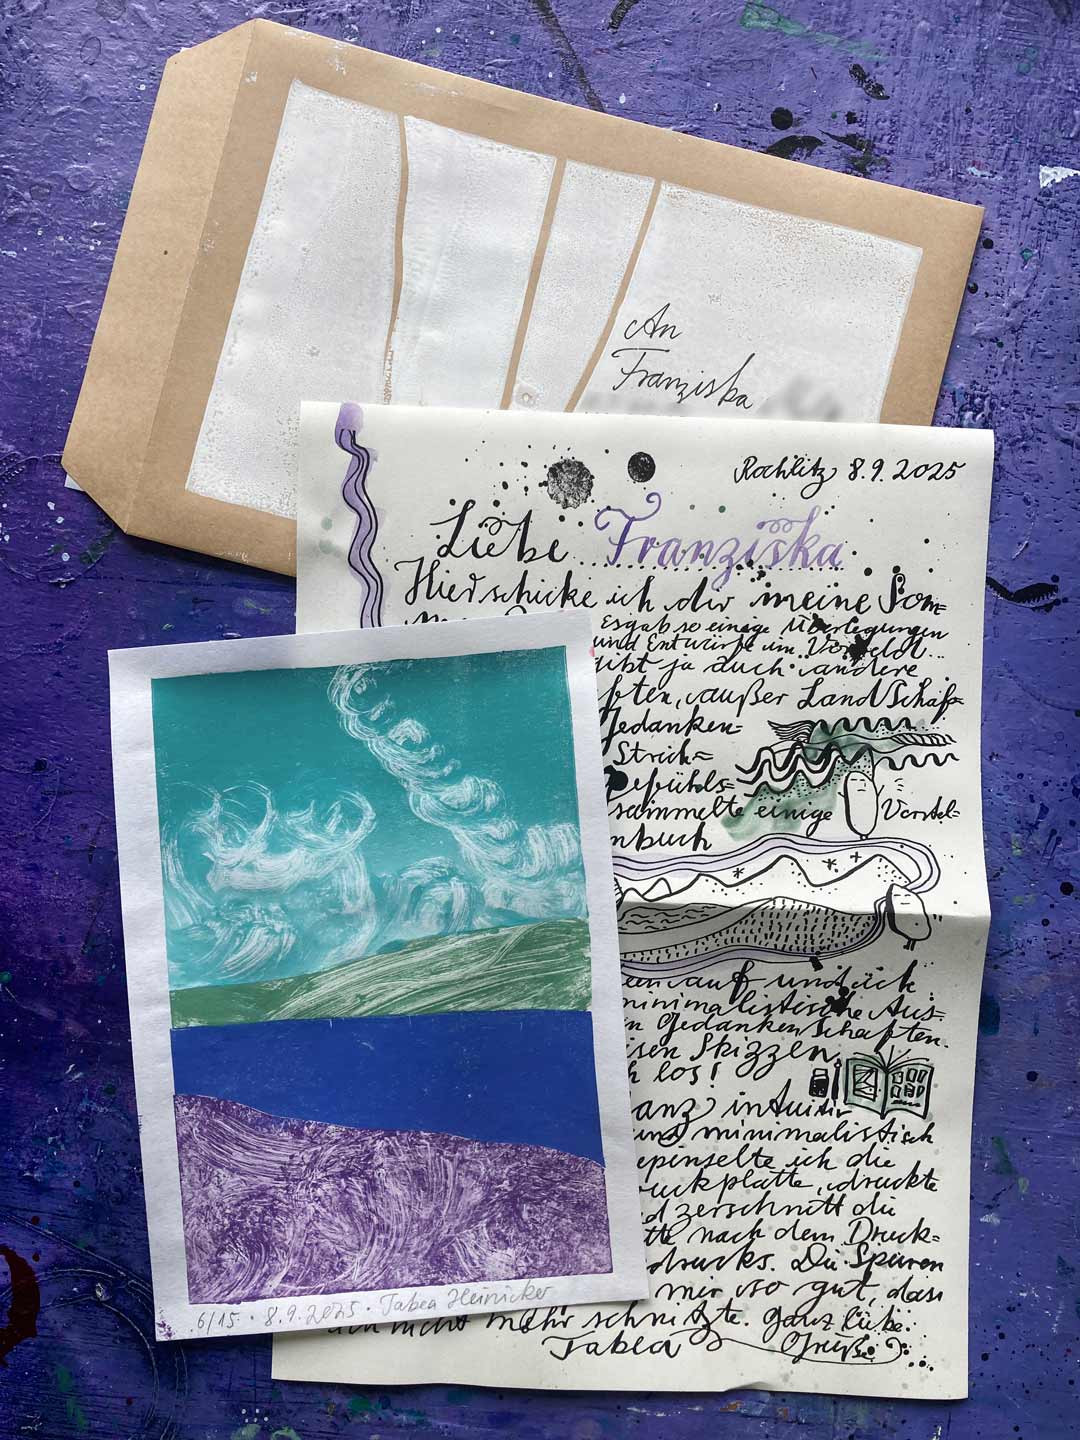 An
Franziska
Rochlitz 8.9.2025
Liebe Franziska
Hier schicke ich dir meine Som=
Es gab so einige Überlegungen
und Entwürfe im Vorfeld...
gibt ja auch andere
ften, außer Landschaf=
Gedanken=
Strick=
Gefühls=
sammelte einige Vorstel=
nbuch
auf und ück
minimalistische Aus=
n Gedankenschaften.
isen Skizzen
h los!
anz intuitiv
und minimalistisch
epinselte ich die
ruckplatte, druckte
d zerschnitt die
tte nach dem Druck=
drucks. Die Spuren
mir so gut, dass
ich nicht mehr schnitzte. Ganz liebe
Tabea Grüße
6/15 · 8.9.2025 · Tabea Heinicker